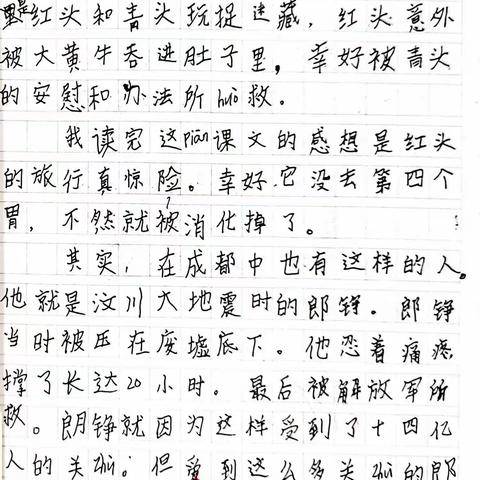 是红头和青头玩捉迷藏，红头意外
被大黄牛吞进肚子里，幸好被青头
的安慰和办法所huò救。
我读完这piān课文的感想是红头
的旅行真惊险。幸好它没去第四个
胃，不然就被消化掉了。
其实，在成都中也有这样的人。
他就是汶川大地震时的郎铮。郎铮
当时被压在废墟底下。他忍着痛疼
撑了长达20小时。最后被解放军所
救。朗铮就因为这样受到了十四亿
人的关zhù。但受到这么多关zhù的郎